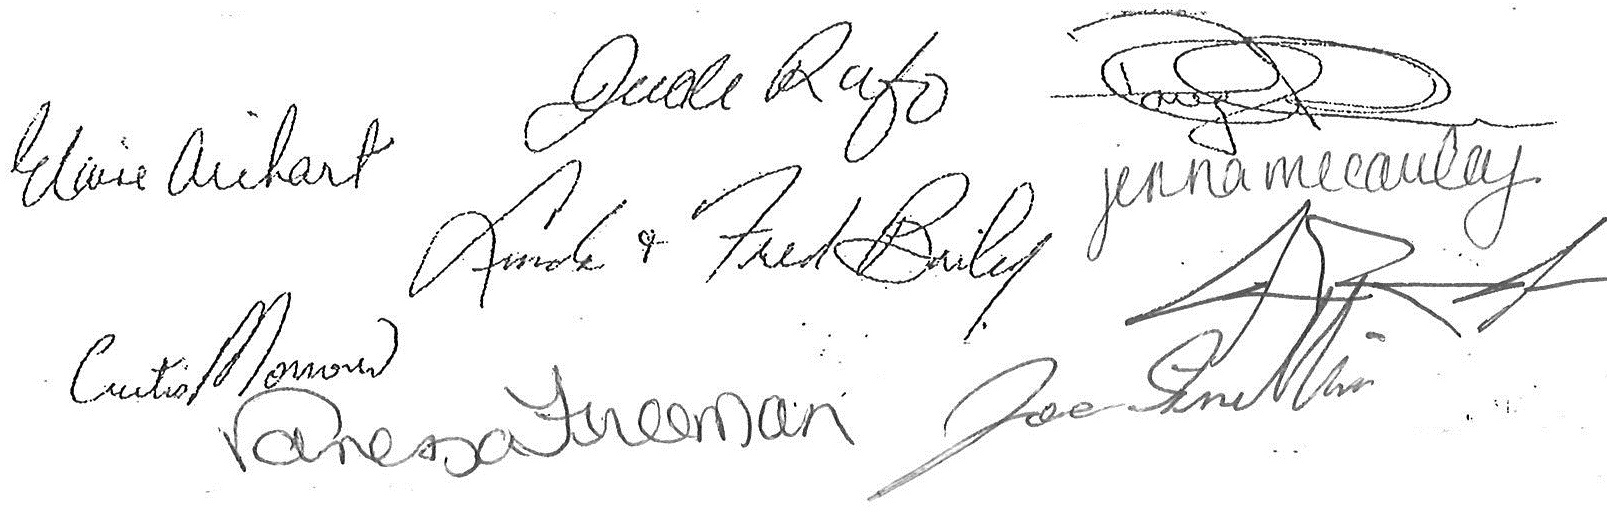 Jude Rufo
Elaine Arihart
jenna mccauley
Linda & Fred Baily
Curtis Morrow
Vanessa Freeman
Joe